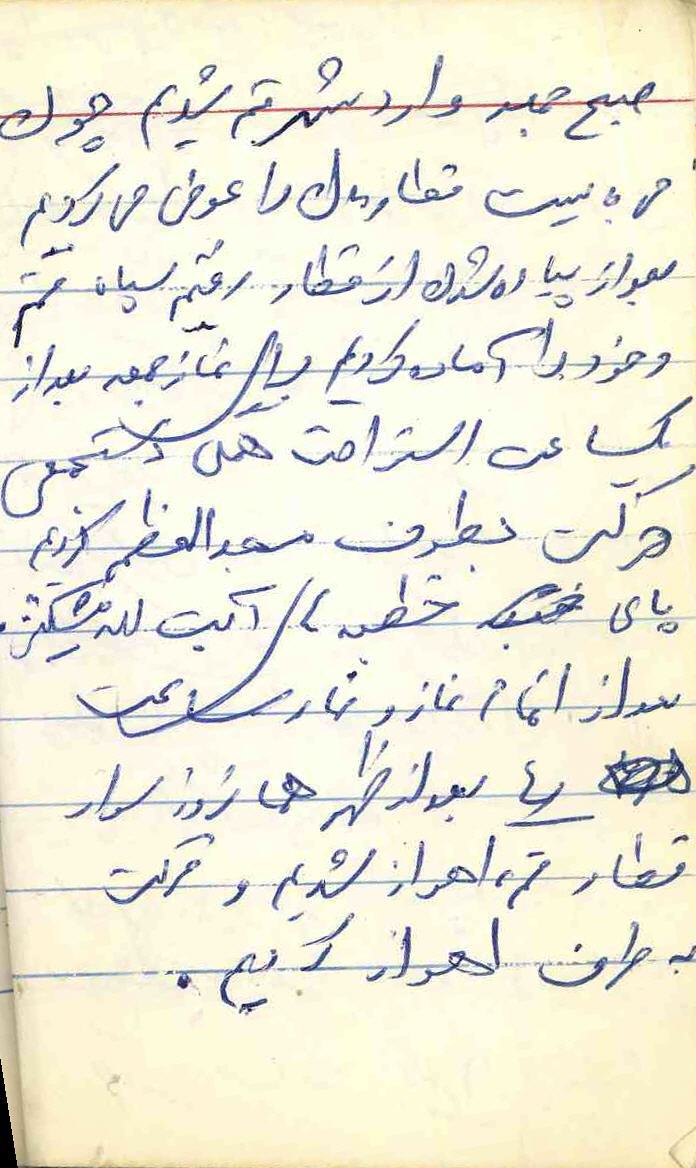 صبح جمعه وارد شهر قم شدیم چون
می بایست قطارمان را عوض می کردیم
بعد از پیاده شدن از قطار رفتیم سپاه قم
و خود را آماده کردیم برای نماز جمعه بعد از
یکساعت استراحت همگی دستجمعی
حرکت بطرف مسجد العظم کردیم
پای خطبه های آیت الله مشکینی
بعد از اتمام نماز و نهار ساعت
بعد از ظهر همان روز سوار
قطار قم، اهواز شدیم و حرکت
به طرف اهواز کردیم.